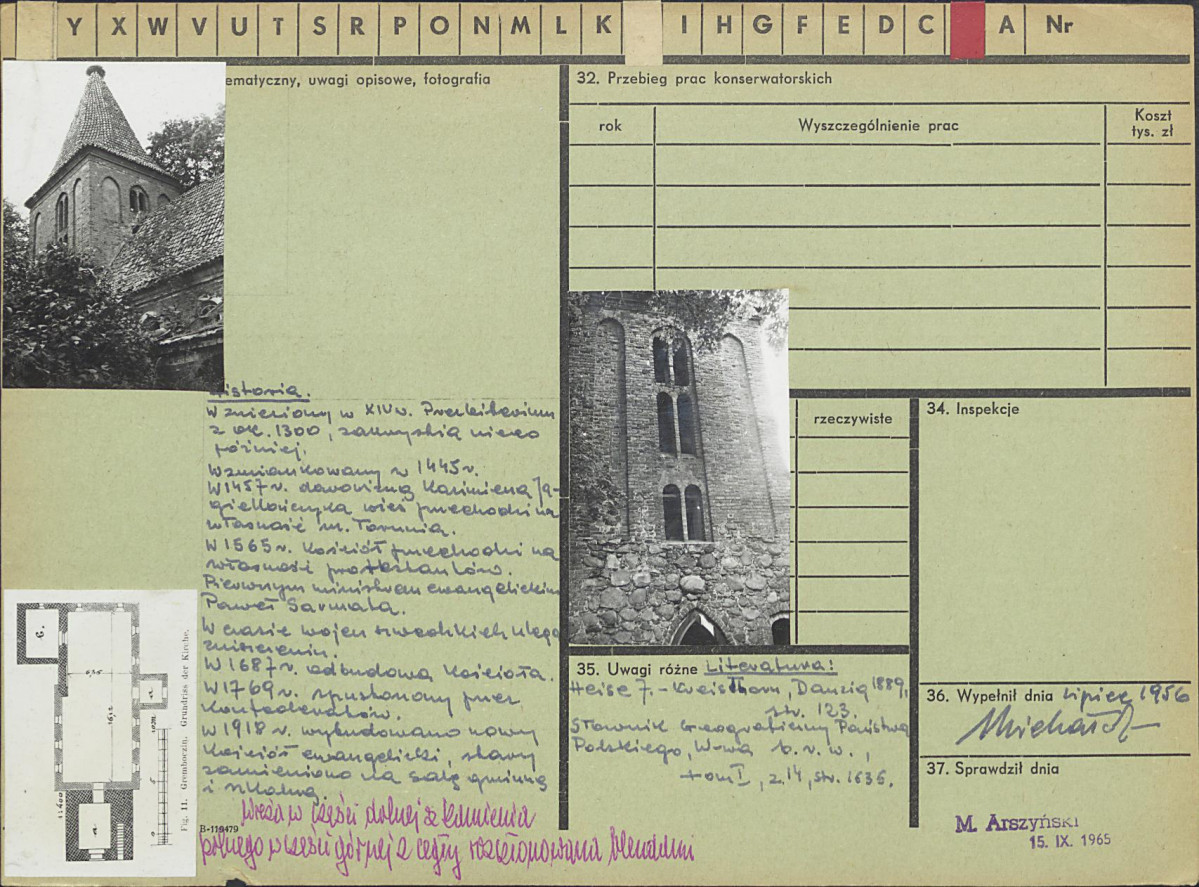 Y X W V U T S R P O N M L K I H G F E D C A Nr
ematyczny, uwagi opisowe, fotografia
Historia.
Wzniesiony w XIV w. Prezbiterium
z ok. 1300, zakrystia nieco
później.
Wzmiankowany w 1445 r.
W 1457 r. darowizną Kazimierza Ja-
giellończyka wieś przechodzi na
własność m. Torunia.
W 1565 r. Kościół przechodzi na
własność protestantów.
Pierwszym ministrem ewangelickim
Paweł Sarmata.
W czasie wojen szwedzkich ulega
zniszczeniu.
W 1687 r. odbudowa Kościoła.
W 1769 r. spustoszony przez
Konfederatów.
W 1918 r. wybudowano nowy
Kościół ewangelicki, stary
zamieniono na salę gminną
i szkolną.
Wieża w części dolnej z kamienia
polnego w części górnej z cegły rozczłonkowana blendami
B-119479
Fig. 11. Gremboczin. Grundriss der Kirche.
a
a
6,36
16,2
10m.
5
0
1:400
32. Przebieg prac konserwatorskich
rok Wyszczególnienie prac Koszt
tys. zł
rzeczywiste
34. Inspekcje
35. Uwagi różne Literatura:
Heise J. - Kreis Thorn, Danzig 1889,
str. 123.
Słownik Geograficzny Państwa
Polskiego, W-wa b.r.w.,
tom I, z. 14, str. 1636.
36. Wypełnił dnia lipiec 1956
37. Sprawdził dnia
M. Arszyński
15. IX. 1965